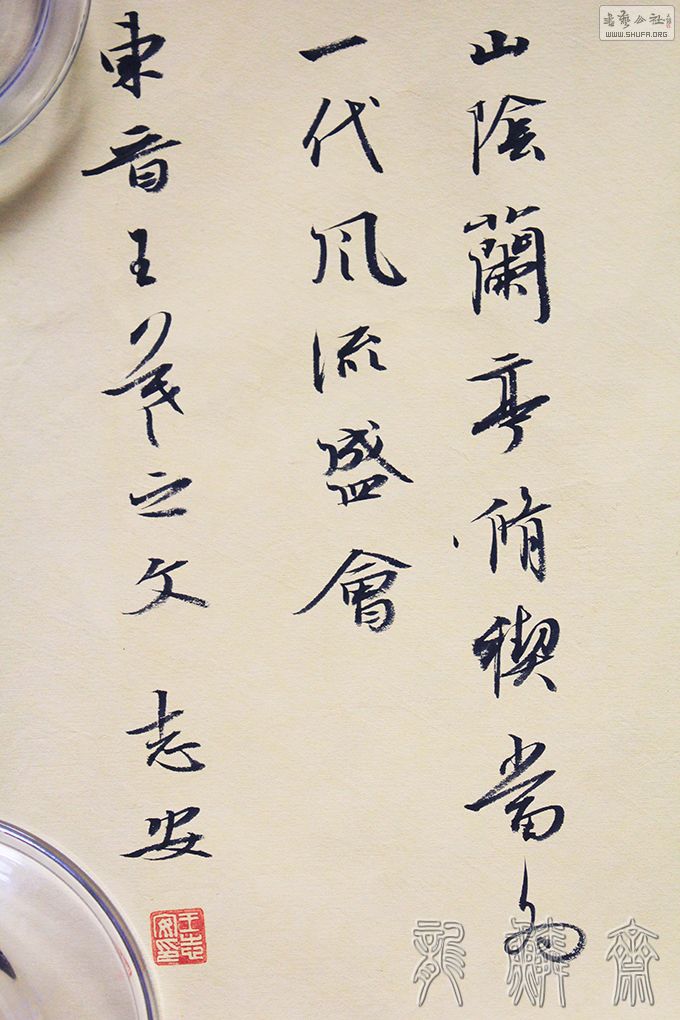 山陰蘭亭脩稧當為
一代風流盛會
東晉王羲之文 志安
王志安印
書藝公社
WWW.SHUFA.ORG